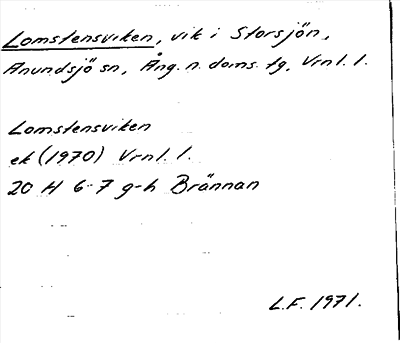 Lomstensviken, vik i Storsjön,
Anundsjö sn, Ång. n. doms. tg, Vrnl. l.
Lomstensviken
ek (1970) Vrnl. l.
20 H 6-7 g-h Brännan
L.F. 1971.